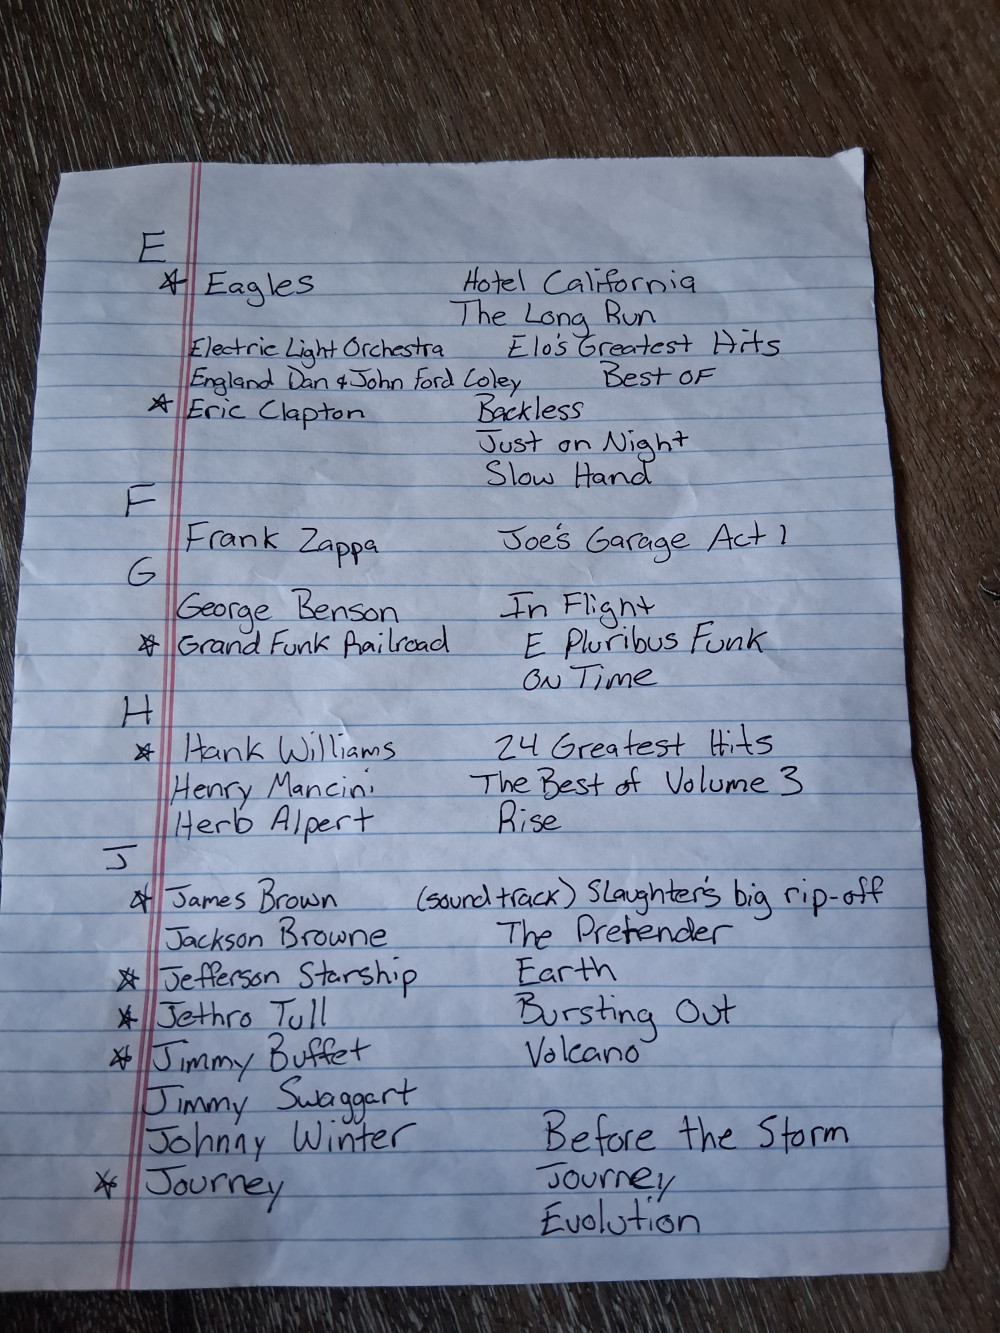 E
☆ Eagles Hotel California
The Long Run
Electric Light Orchestra Elo's Greatest Hits
England Dan & John Ford Coley Best OF
☆ Eric Clapton Backless
Just on Night
Slow Hand
F
Frank Zappa Joe's Garage Act 1
G
George Benson In Flight
☆ Grand Funk Railroad E Pluribus Funk
ON Time
H
☆ Hank Williams 24 Greatest Hits
Henry Mancini The Best of Volume 3
Herb Alpert Rise
J
☆ James Brown (soundtrack) Slaughter's big rip-off
Jackson Browne The Pretender
☆ Jefferson Starship Earth
☆ Jethro Tull Bursting Out
☆ Jimmy Buffet Volcano
Jimmy Swaggart
Johnny Winter Before the Storm
☆ Journey Journey
Evolution